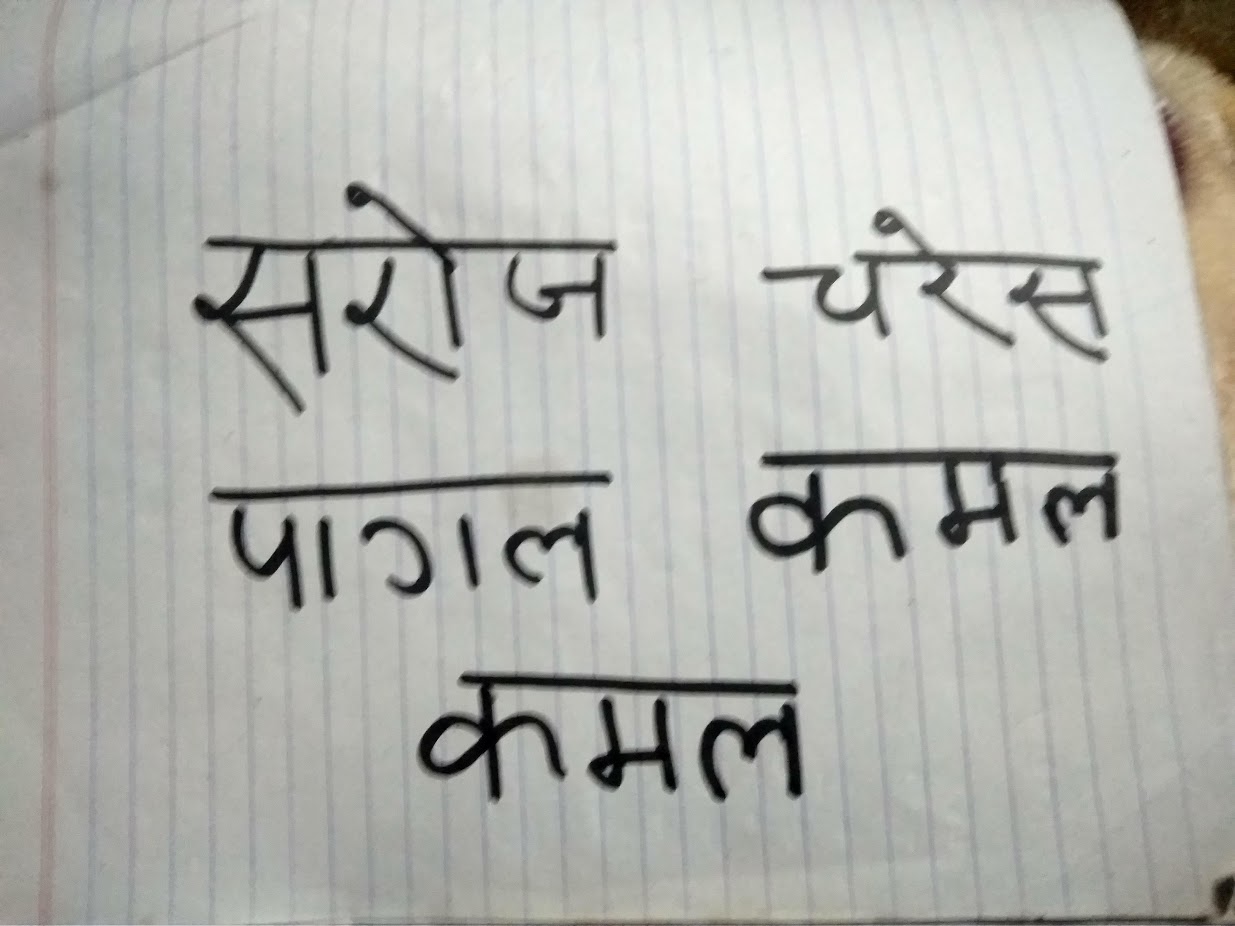 सरोज चरेस
पागल कमल
कमल